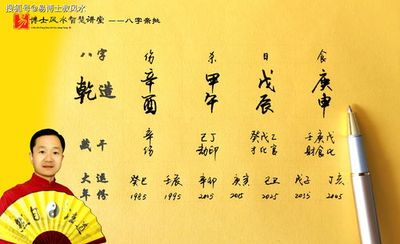 搜狐号@易博士教风水
易博士风水智慧讲堂 ——八字案批
八字 伤 杀 日 食
乾造 辛 甲 戊 庚
酉 午 辰 申
藏干 辛 己丁 癸戊乙 壬庚戊
伤 劫印 才比官 财食比
大运 癸巳 壬辰 辛卯 庚寅 己丑 戊子 丁亥
年份 1985 1995 2005 2015 2025 2035 2045